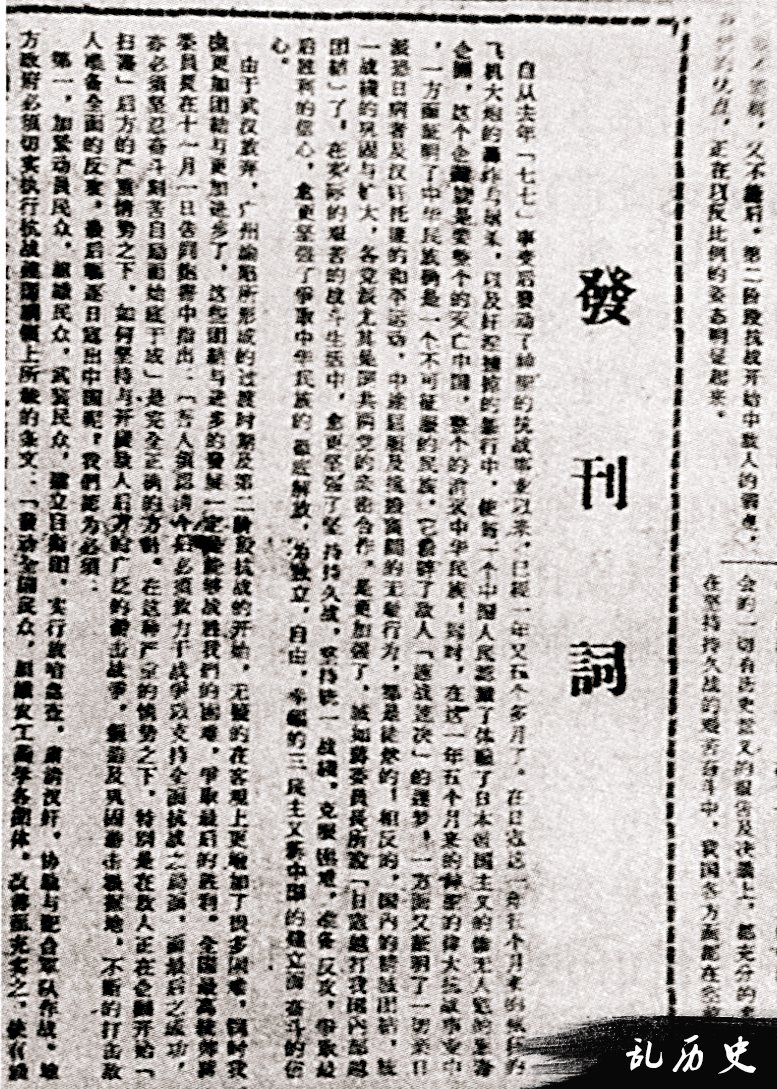 第二阶段抗战开始中敌人的弱点，
的优点，正在以反比例的姿态明征起来。
会的一切有历史意义的报告及决议上，都充分的
在坚持持久战的艰苦奋斗中，我国各方面都在
發刊詞
自从去年「七七」事变后發动了神聖的抗战事业以来，已经一年又五个多月了。在日寇这一年五个月来的疯狂的
飞机大炮的轰炸与屠杀，以及奸淫掳掠的暴行中，使每一个中国人民認識了体驗了日本帝国主义的
企圖，这个企圖就是要整个的灭亡中国，整个的消灭中华民族！同时，在这一年五个月来的伟大抗战事变中
，一方面証明了中华民族确是一个不可征服的民族，它粉碎了敌人「速战速决」的迷梦，一方面又証明了一切亲日
派恐日病者及汉奸托匪的和平运动，中途屈服及挑撥离間的无耻行为，都是徒然的！相反的，国内的精誠团结，统
一战綫的巩固与扩大，各党派尤其是国共两党的亲密合作，是更加强了，誠如蔣委員長所說「日寇越打我国内部越
团結」了。在实际的艰苦的战斗生活中，愈更坚强了坚持持久战，坚持统一战綫，克服困难，准备反攻，爭取最
后胜利的信心，愈更坚强了爭取中华民族的彻底解放，为独立，自由，幸福的三民主义新中国的建立而奋斗的信
心。
由于武汉放弃，广州淪陷所形成的过渡时期及第二阶段抗战的开始，无疑的在客观上更增加了很多困难，同时我
也更加团結与更加进步了，这些团結与进步的發展一定是能够战胜我們的困难，爭取最后的胜利。全国最高統帥蔣
委員長在十一月一日告国民書中指出：「吾人須認清今后必須致力于战爭以支持全面抗战之局面，而最后之成功，
亦必須坚忍奋斗刻苦自励而始底于成」是完全正确的方針。在这种严重的情势之下，特别是在敌人正在企圖开始「
扫蕩」后方的严重情势之下，如何坚持与开展敌人后方的广泛的游击战爭，創造及巩固游击根据地，不断的打击敌
人准备全面的反攻，最后驅逐日寇出中国呢？我們認为必須：
第一，加紧动員民众，組織民众，武装民众，建立自衛团，实行放哨盘查，肅清汉奸，协助与配合军队作战。地
方政府必須切实执行抗战建国綱領上所載的条文：「發动全国民众，組織农工商学各团体，改善而充实之，使有錢
乱历史